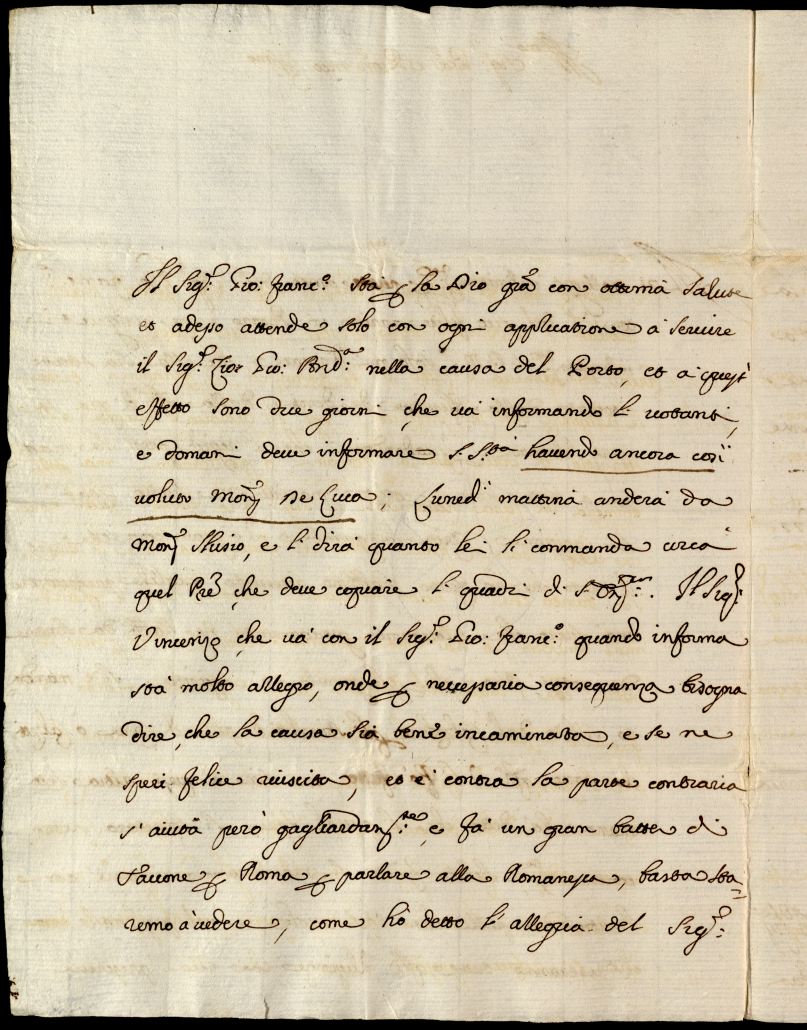 Il Sig.r Gio: Franc.o stà p la Dio grã con ottima salute
et adesso attende solo con ogni applicatione a servire
il Sig.r Zio Gio: Bnd.a nella causa del Porto, et a quest
effetto sono due giorni che và informando li votanti,
e domani deve informare S. S.tà havendo ancora così
voluto Mons.r De Luca; Lunedì mattina anderà da
Mons.r Slusio, e li dirà quanto lei li commanda circa
quel Prẽ che deve copiare li quadri di S. Il Sig.r
Vincenzo che và con il Sig.r Gio: Franc.o quando informa
stà molto allegro, onde p necessaria consequenza bisogna
dire, che la causa sia bene incaminata, e se ne
speri felice riuscita, et è contra la parte contraria
s'aiuta però gagliardam.te e fà un gran batter di
Taccone p Roma p parlare alla Romanesca, basta sta=
remo à vedere, come hò detto l'allegria del Sig.r